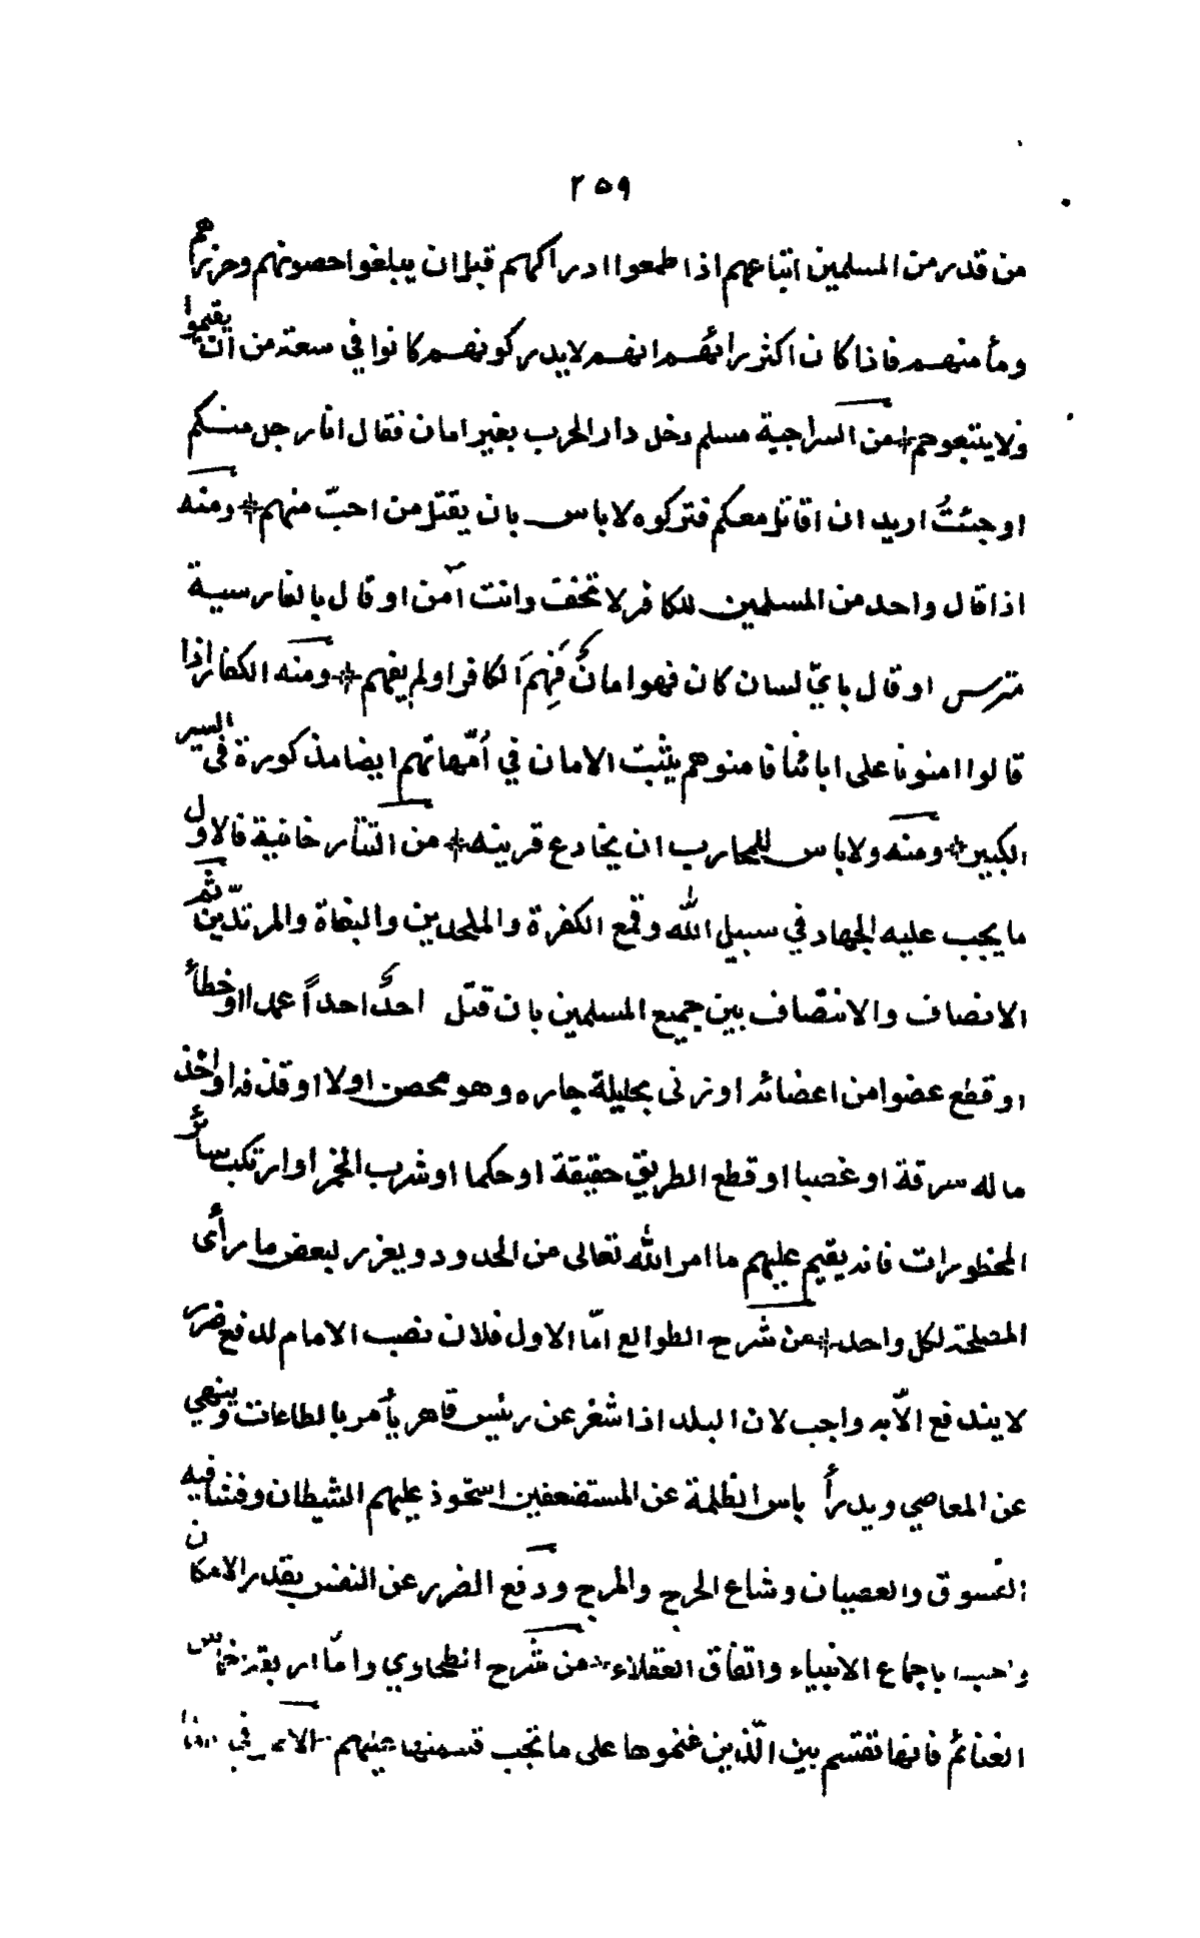 ٢٥٩
من قدر من المسلمين اتباعهم اذا طمعوا ادراكهم قبل ان يبلغوا حصونهم وحرزهم
ومأمنهم فاذا كان اكثر رائهم انهم لا يدركونهم كانوا في سعة من ان يقيموا
ولا يتبعوهم من السراجية مسلم دخل دار الحرب بغير امان فقال انا رجل منكم
او جئتُ اريد ان اقاتل معكم فتركوه لا باس بان يقتل من احبّ منهم ومنه
اذا قال واحد من المسلمين للكافر لا تخف وانت آمن او قال بالفارسية
مترس او قال بايّ لسان كان فهو امانٌ فَهِمَ الكافر او لم يفهم ومنه الكفار اذا
قالوا امنونا على ابائنا فامنوهم يثبت الامان في اُمّهاتهم ايضا مذكورة في السير
الكبير ومنه ولا باس للمحارب ان يخادع قرينه من التتارخانية فالاول
ما يجب عليه الجهاد في سبيل الله وقمع الكفرة والملحدين والبغاة والمرتدّين ثم
الانصاف والانتصاف بين جميع المسلمين بان قتل احدٌ احداً عمدا او خطأ
او قطع عضوا من اعضائه او زنى بحليلة جاره وهو محصن اولا او قذفه او اخذ
ماله سرقة او غصبا او قطع الطريق حقيقة او حكما او شرب الخمر او ارتكب سائر
المحظورات فانه يقيم عليهم ما امر الله تعالى من الحدود ويعزر لبعض ما رأى
المصلحة لكل واحد من شرح الطوالع امّا الاول فلان نصب الامام لدفع ضرر
لا يندفع الّا به واجب لان البلد اذا شغر عن رئيس قاهر يأمر بالطاعات وينهي
عن المعاصي ويدرأ باس الظلمة عن المستضعفين استحوذ عليهم الشيطان وفشا فيه
الفسوق والعصيان وشاع الهرج والمرج ودفع الضرر عن النفس بقدر الامكان
واجب باجماع الانبياء واتفاق العقلاء من شرح الطحاوي وامّا اربعة اخماس
الغنائم فانها تقتسم بين الّذين غنموها على ما تجب قسمتها بينهم